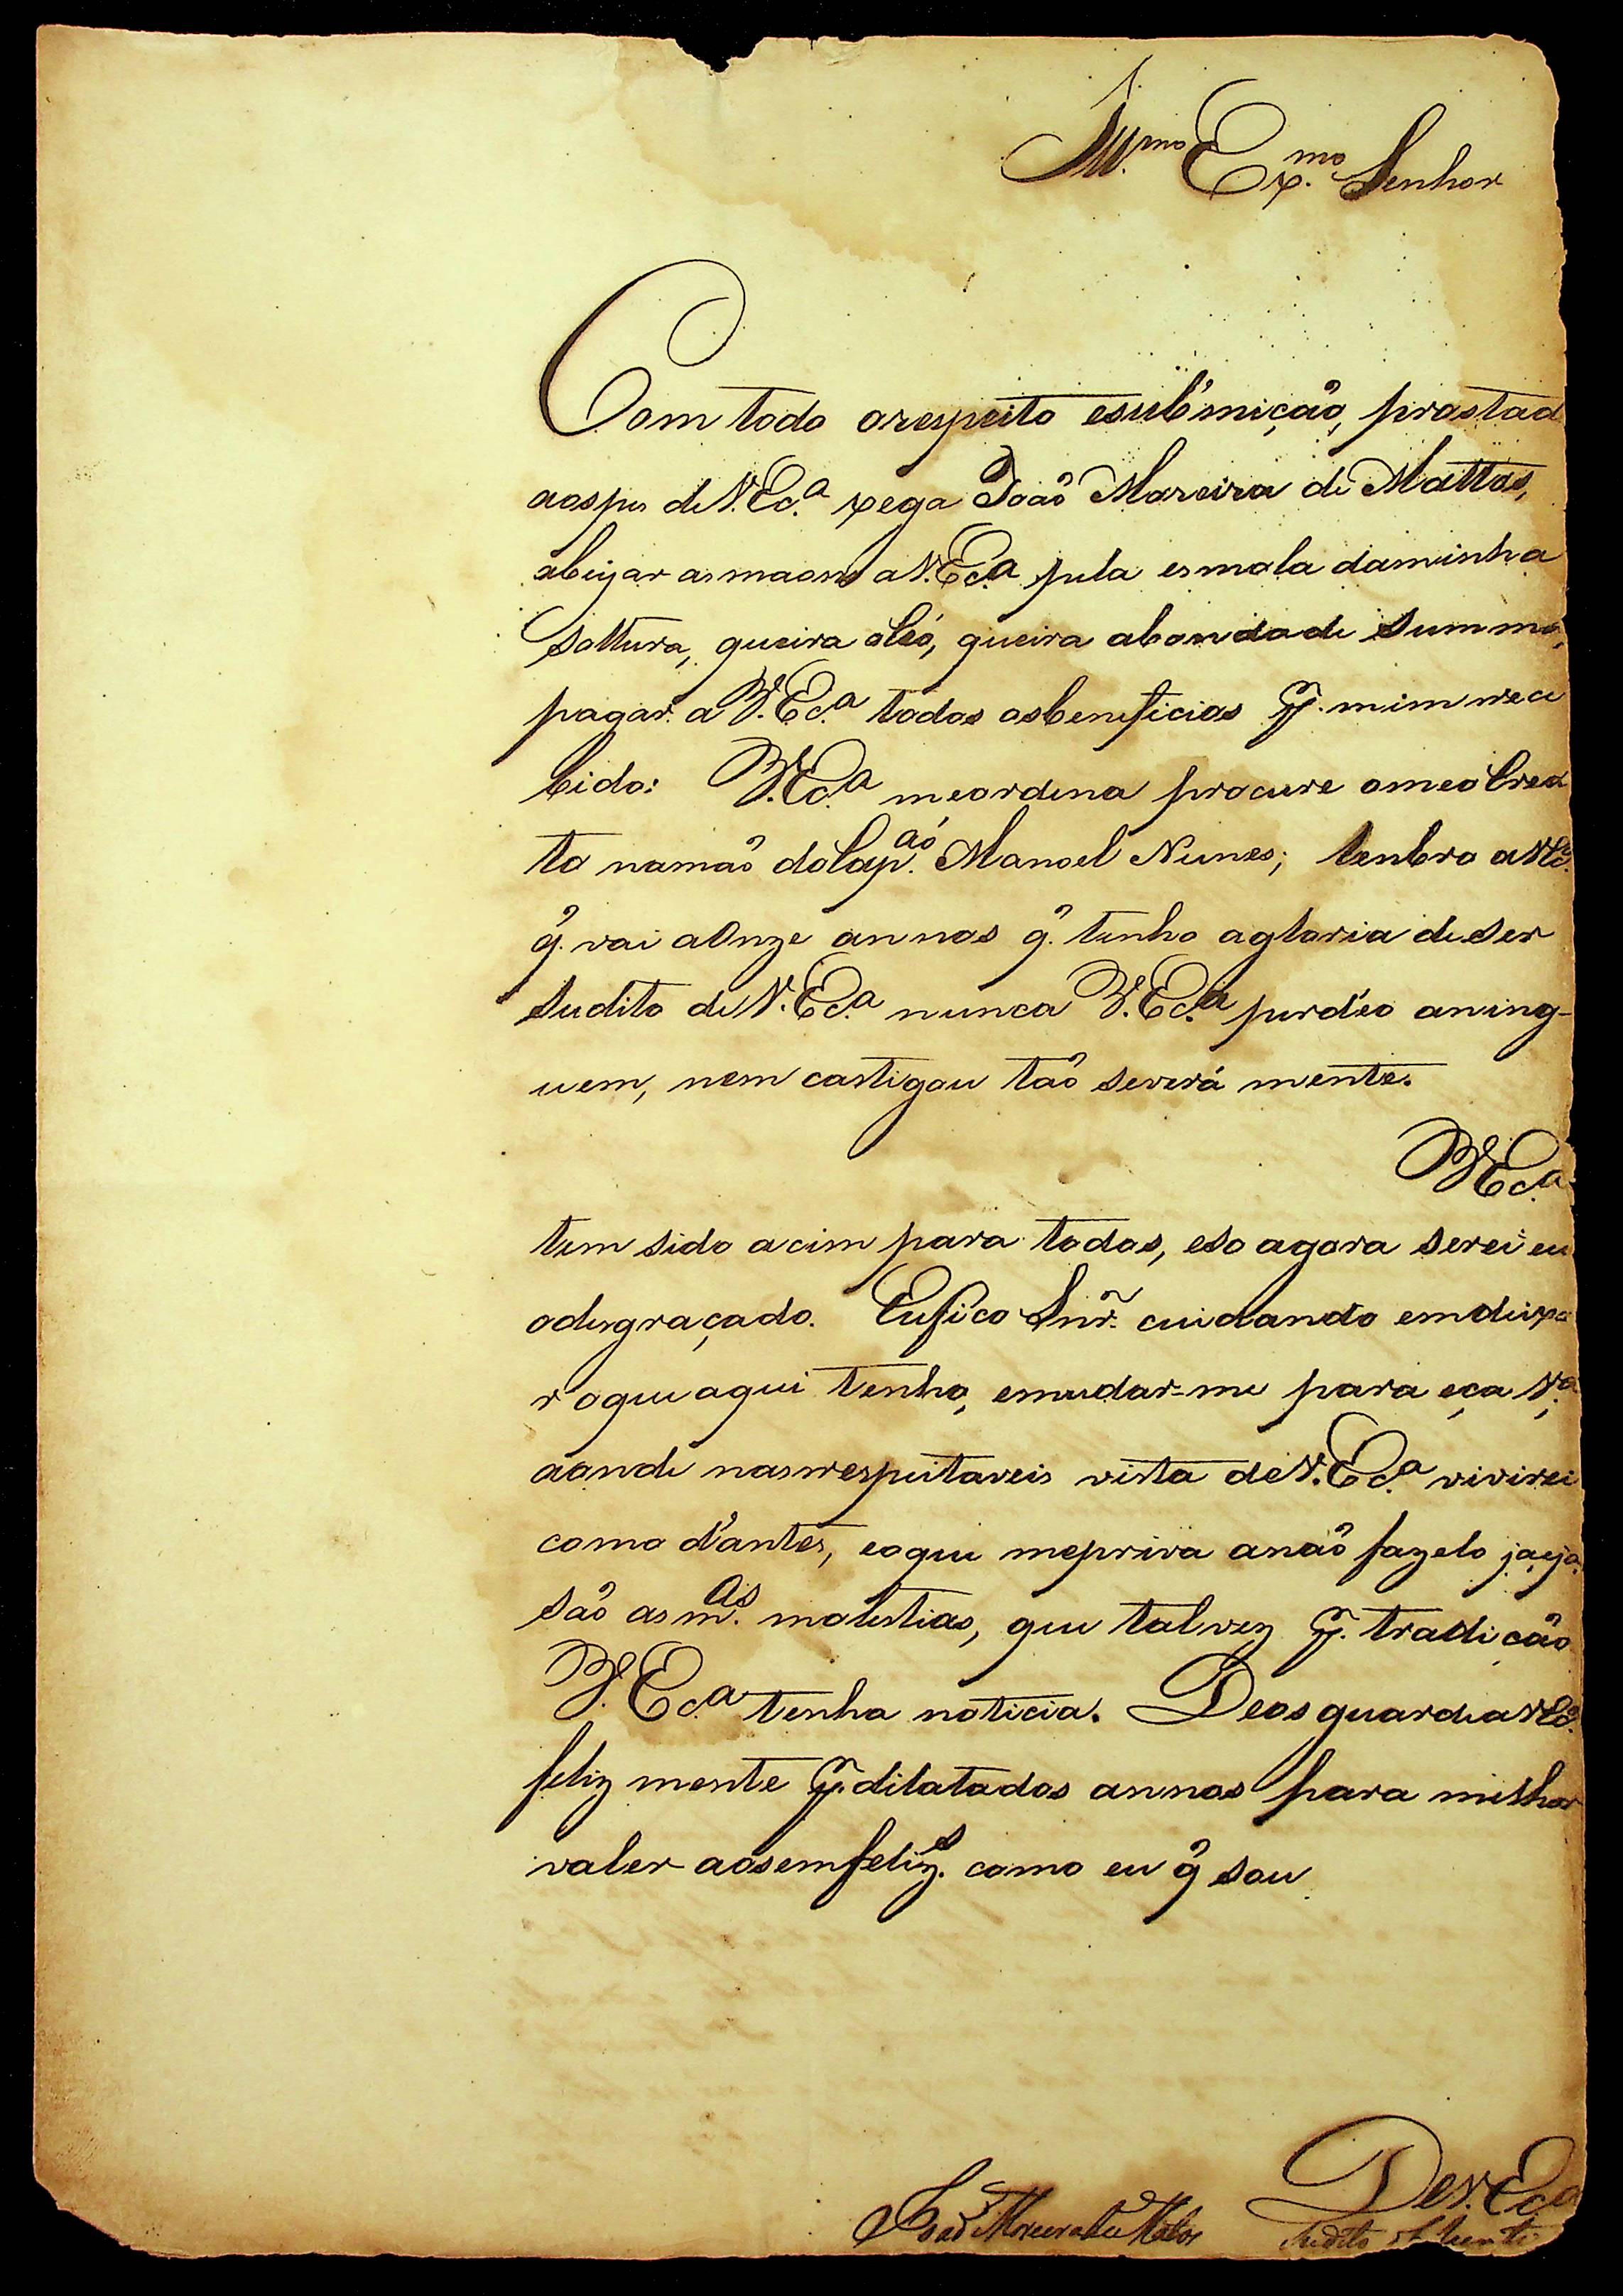 Ill.mo Ex.mo Senhor
Com todo orespeito esubmição, prostad
aospes de V. Ec.a xega João Moreira de Mattos,
abeijar asmaons a V. Ec.a pela esmola daminha
Solttura, queira oCéo, queira abondade Summa,
pagar a V. Ec.a todos osbeneficios p. mim rece
bido: V. Ec.a meordena procure omeo Cred
to namão doCap.ão Manoel Nunes; lenbro a V Ec.a
q. vai aOnze annos q. tenho agloria deser
Sudito de V. Ec.a nunca V. Ec.a perdéo aning-
uem, nem castigou tão severá mente.
V Ec.a
tem sido acim para todos, eso agora serei eu
odesgraçado. Eufico Snr. cuidando emdispo
r oque aqui tenho, emudar-me para eça V.a
aonde nasrespeitaveis vista de V. Ec.a vivirei
como d'antes, eoque mepriva anão fazelo já, já
são as m.as molestias, que talvez p. tradição
V. Ec.a tenha noticia. Deos guardea V Ec.a
feliz mente p. dilatados annos para milhor
valer aosemfeliz.s como eu q sou
De V. Ec.a
João Moreira de Matos Sudito